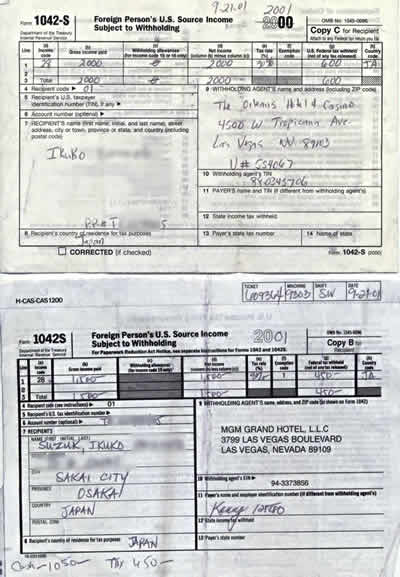 9-21-01 2001
Form 1042-S
Department of the Treasury
Internal Revenue Service
Foreign Person's U.S. Source Income
Subject to Withholding
2000
OMB No. 1545-0096
Copy C for Recipient
Attach to any Federal tax return you file
Line
(a) Income code
(b) Gross income paid
(c) Withholding allowances (for income code 15 or 16 only)
(d) Net income (column (b) minus column (c))
(e) Tax rate (%)
(f) Exemption code
(g) U.S. Federal tax withheld (net of any tax released)
(h) Country code
1 28 2000 2000 600 JA
2
3 Total 2000 2000 600
4 Recipient code ▶ 01
5 Recipient's U.S. taxpayer
identification number (TIN), if any ▶
6 Account number (optional) ▶
7 RECIPIENT'S name (first name, initial, and last name), street
address, city or town, province or state, and country (including
postal code)
IKUKO
8 Recipient's country of residence for tax purposes
Japan
CORRECTED (if checked)
9 WITHHOLDING AGENT'S name and address (including ZIP code)
The Orleans Hotel & Casino
4500 W Tropicana Ave
Las Vegas NV 89103
10 Withholding agent's TIN
11 PAYER'S name and TIN (if different from withholding agent's)
12 State income tax withheld
13 Payer's state tax number
14 Name of state
Form 1042-S (2000)
H-CAS-CAS1200
TICKET MACHINE SHIFT DATE
9303 SW 9-21-01
Form 1042S
Department of the Treasury
Internal Revenue Service
Foreign Person's U.S. Source Income
Subject to Withholding
For Paperwork Reduction Act Notice, see separate Instructions for Form 1042 and 1042S.
2001
Copy B
Recipient
Line
1 28 1,500 1,500 1 450 JA
2
3 1,500 1,500 450
4 Recipient code (see instructions) ▶ 01
5 Recipient's U.S. tax identification number ▶
6 Account number (optional) ▶
7 RECIPIENT'S
NAME (FIRST INITIAL LAST)
SUZUK, IKUKO
CITY
SAKAI CITY
PROVINCE
OSAKA
COUNTRY
JAPAN
POSTAL CODE
8 Recipient's country of residence for tax purposes JAPAN
9 WITHHOLDING AGENT'S name, address, and ZIP code (as shown on Form 1042)
MGM GRAND HOTEL, L.L.C
3799 LAS VEGAS BOULEVARD
LAS VEGAS, NEVADA 89109
10 Withholding agent's EIN ▶
94-3373856
11 Payer's name and employer identification number (if different from withholding agent's)
12 State income tax withheld
13 Payer's state number
Cash - 1050 - TAX 450 -